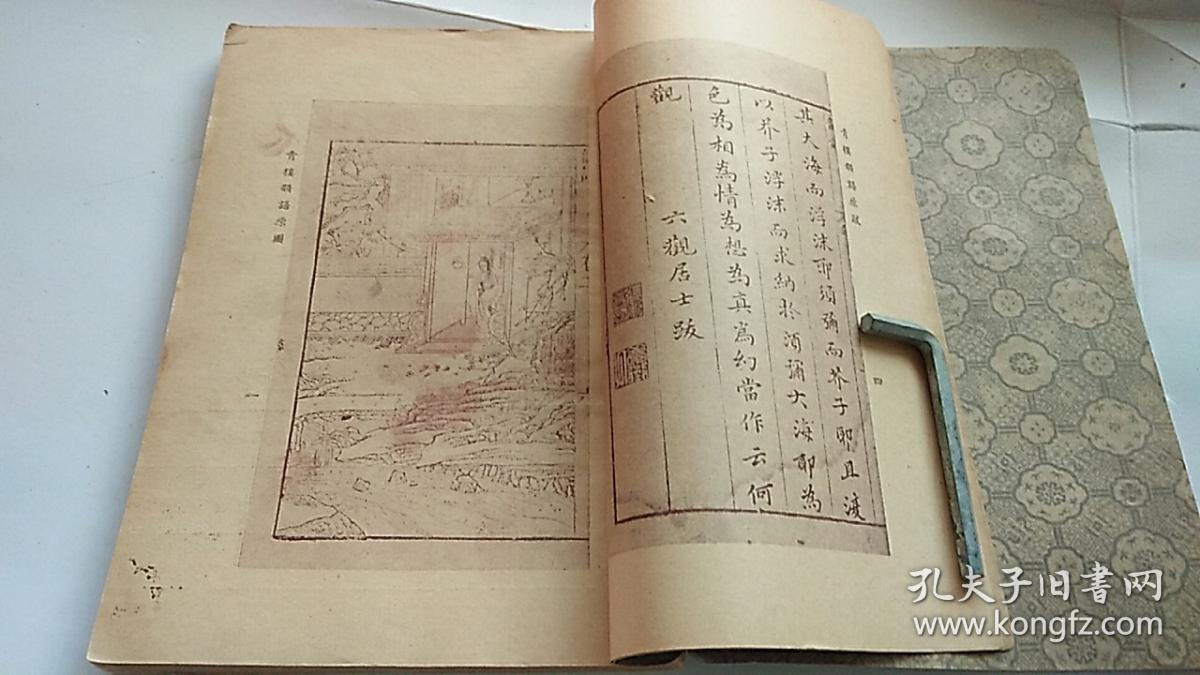 青樓韻語原跋
其大海而浮沫耶須彌而芥子耶且渡
以芥子浮沫而求納於須彌大海耶為
色為相為情為想為真為幻當作云何
觀
六觀居士跋
四
青樓韻語原圖
一
孔夫子旧书网
www.kongfz.com